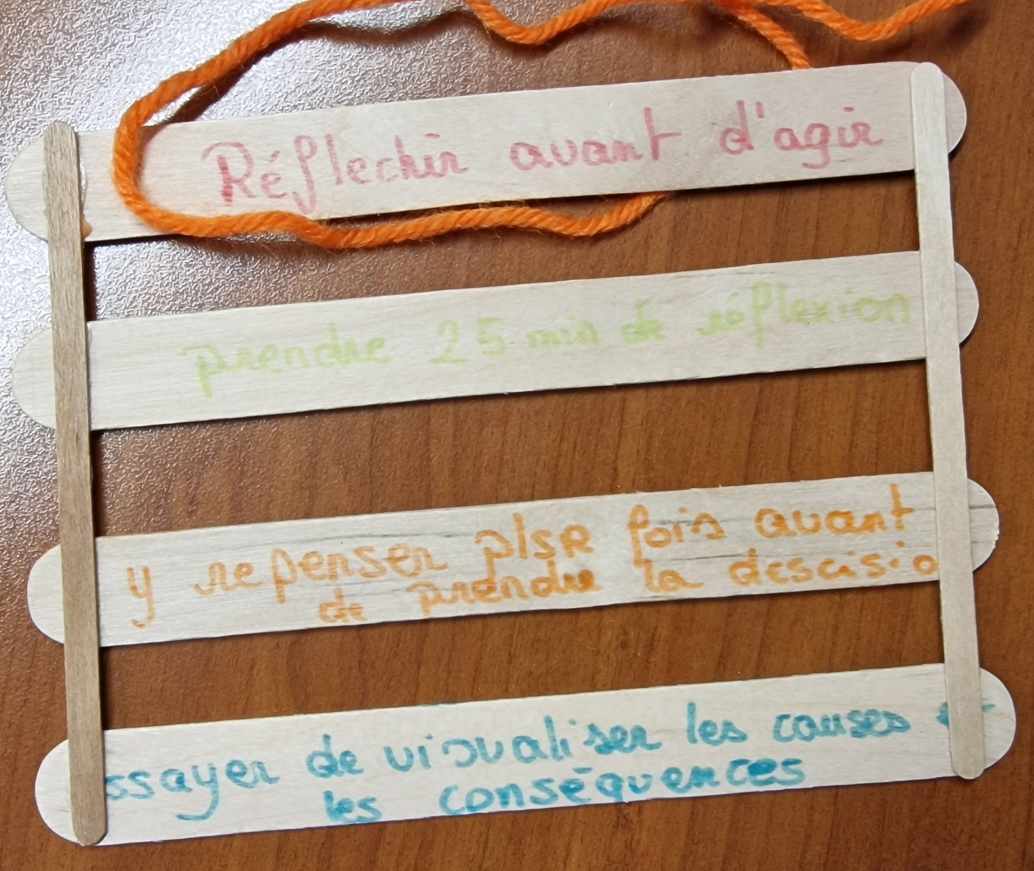 Réflechir avant d'agir
prendre 25 min de réflexion
y repenser plsR fois avant
de prendre la descisio
ssayer de visualiser les causes
les conséquences